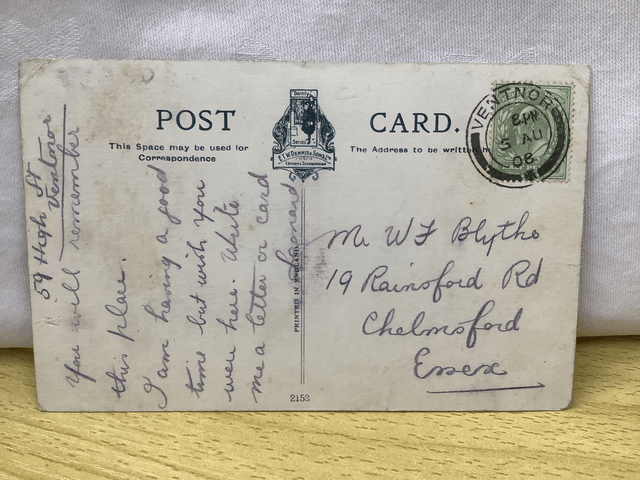 POST CARD.
This Space may be used for
Correspondence
The Address to be written h
Dainty
Series
E.T.W. DENNIS & SONS LTD
LONDON & SCARBOROUGH
VENTNOR
8 PM
5 AU
08
59 High St
Ventnor
You will remember
this place.
I am having a good
time but wish you
were here. Write
me a letter or card
Leonard
PRINTED IN ENGLAND
Mr W F Blythe
19 Rainsford Rd
Chelmsford
Essex
2153